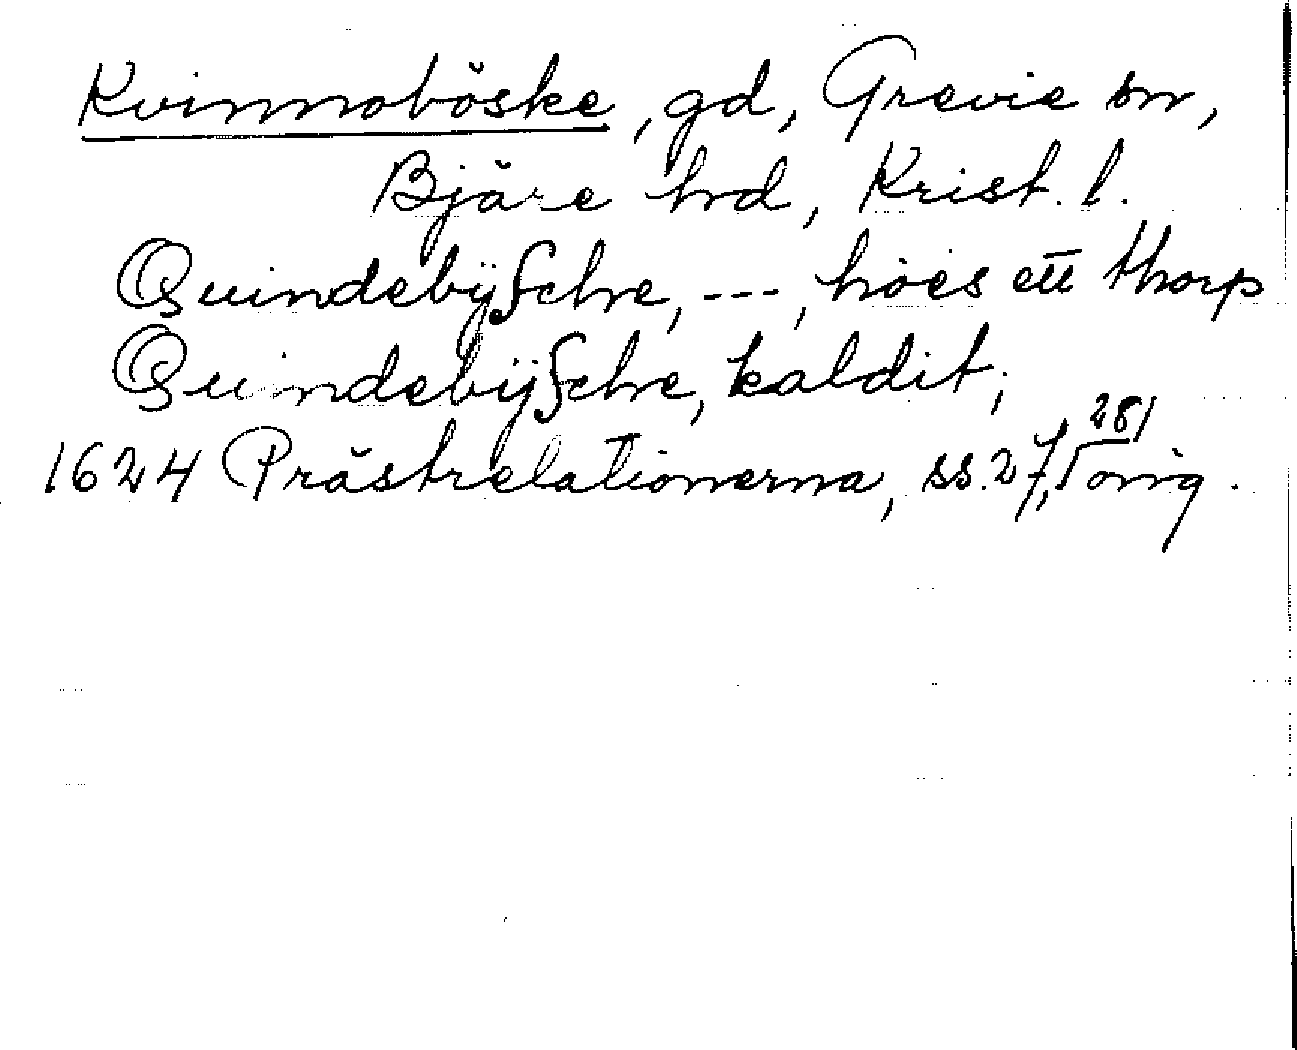 Kvinnoböske, gd, Grevie sn,
Bjäre hrd, Krist. l.
Quindebÿsche, ---, höes ett thorp
Quindebÿsche, kaldit;
1624 Prästrelationerna, ss. 27, 281 orig.